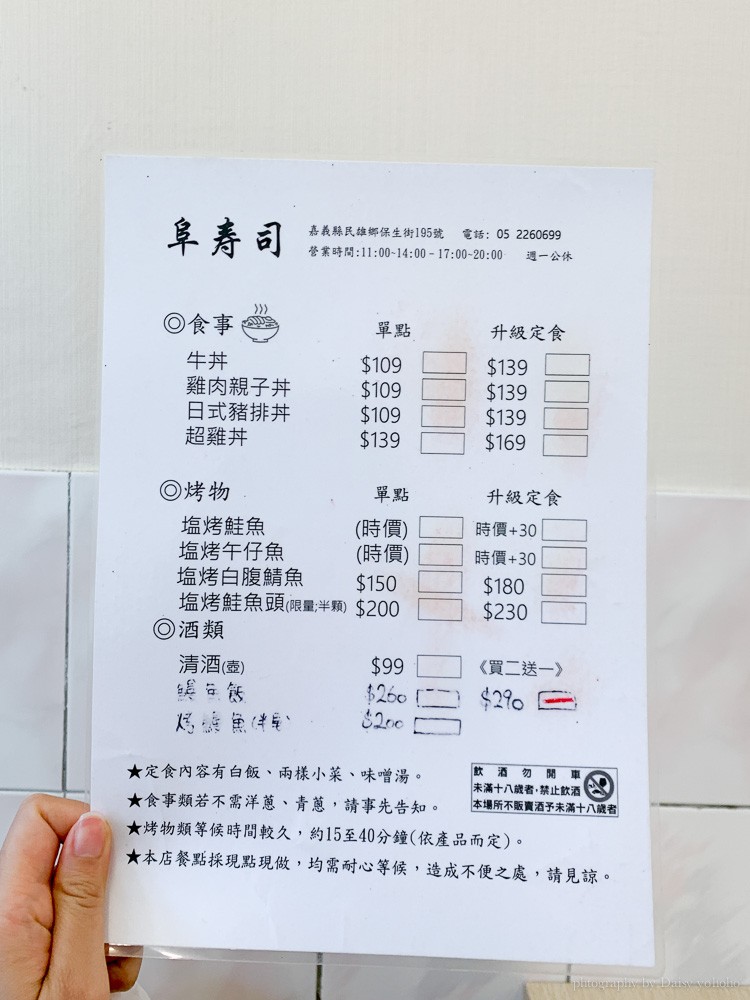 阜寿司 嘉義縣民雄鄉保生街195號 電話: 05 2260699
營業時間:11:00~14:00 - 17:00~20:00 週一公休
◎食事 單點 升級定食
牛丼 $109 $139
雞肉親子丼 $109 $139
日式豬排丼 $109 $139
超雞丼 $139 $169
◎烤物 單點 升級定食
塩烤鮭魚 (時價) 時價+30
塩烤午仔魚 (時價) 時價+30
塩烤白腹鯖魚 $150 $180
塩烤鮭魚頭(限量;半顆) $200 $230
◎酒類
清酒(壺) $99 《買二送一》
鰻魚飯 $260 $290
烤 魚(半 $200
★定食內容有白飯、兩樣小菜、味噌湯。
★食事類若不需洋蔥、青蔥，請事先告知。
★烤物類等候時間較久，約15至40分鐘(依產品而定)。
★本店餐點採現點現做，均需耐心等候，造成不便之處，請見諒。
飲酒勿開車
未滿十八歲者,禁止飲酒
本場所不販賣酒予未滿十八歲者
photography by